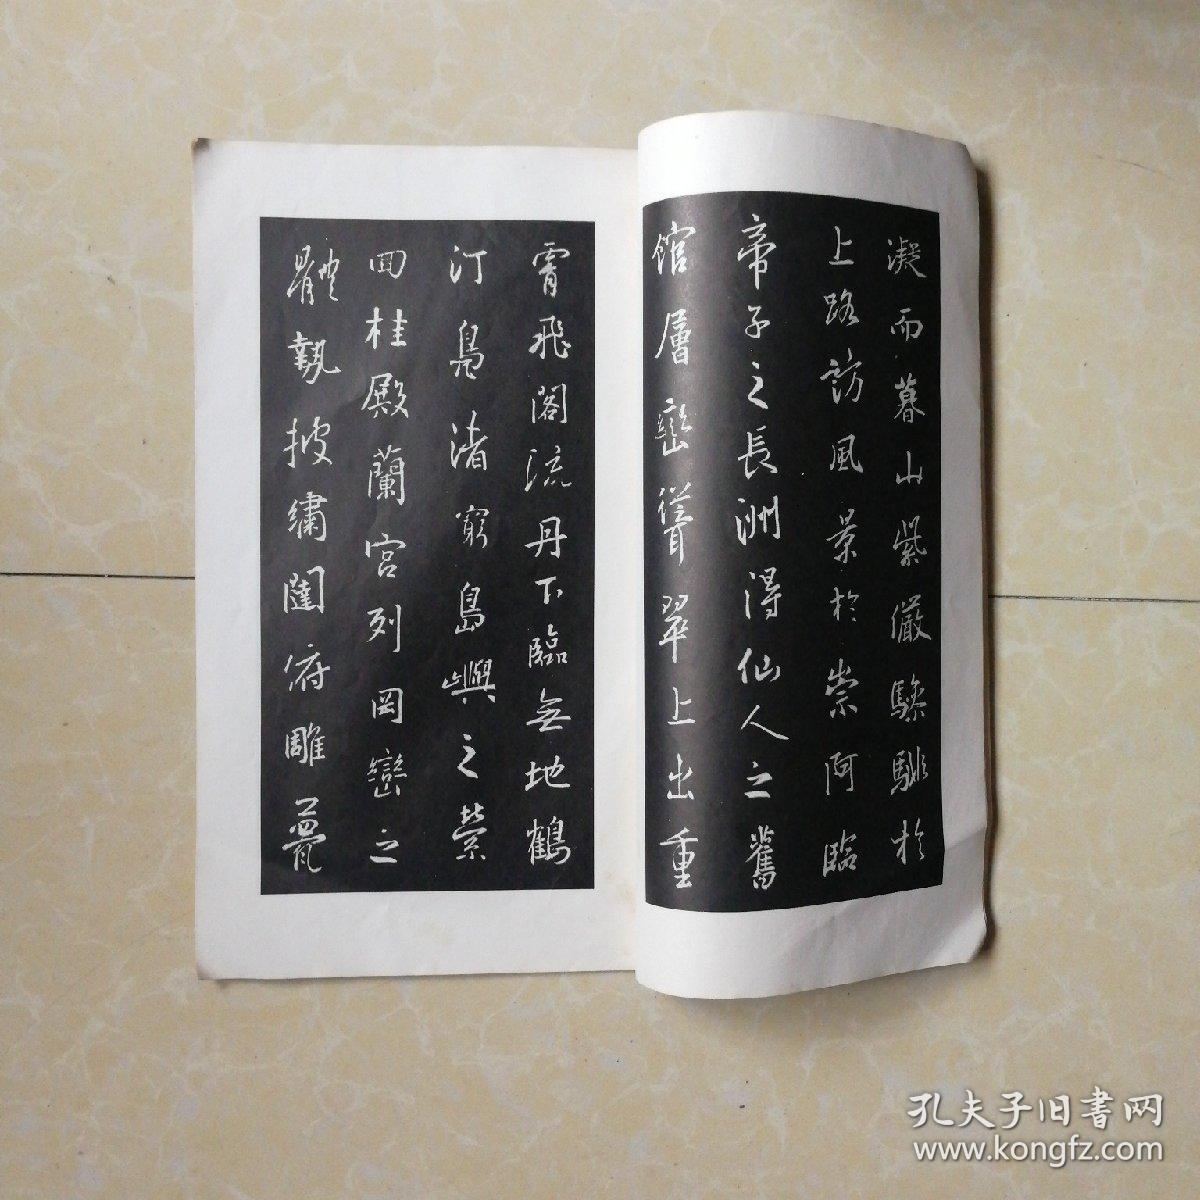 凝而暮山紫儼驂騑於
上路訪風景於崇阿臨
帝子之長洲得仙人之舊
館層巒聳翠上出重
霄飛閣流丹下臨無地鶴
汀鳧渚窮島嶼之縈
回桂殿蘭宮列岡巒之
體勢披繡闥俯雕甍
孔夫子旧書网
www.kongfz.com